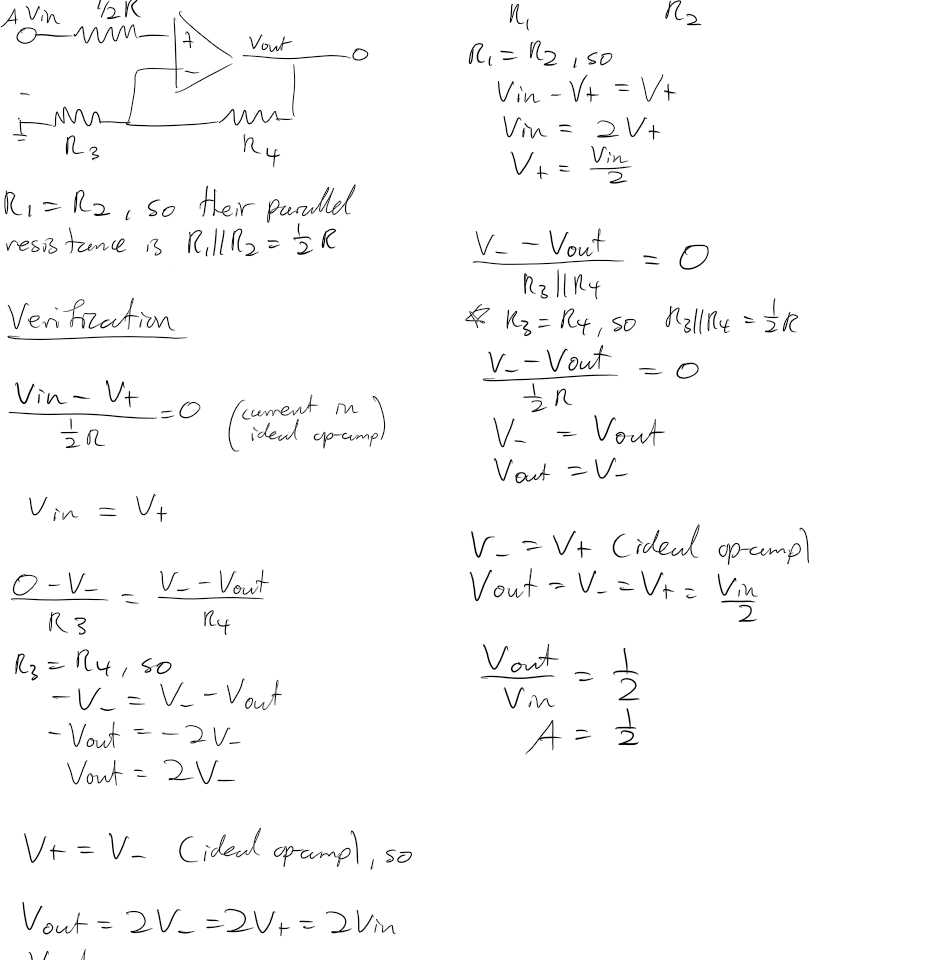 A Vin 1/2 R
+
Vout
-
-
R3
R4
R1 = R2, so their parallel
resistance is R1||R2 = 1/2 R
Verification
Vin - V+ / 1/2 R = 0 (current in ideal op-amp)
Vin = V+
0 - V- / R3 = V- - Vout / R4
R3 = R4, so
-V- = V- - Vout
-Vout = -2V-
Vout = 2V-
V+ = V- (ideal op-amp), so
Vout = 2V- = 2V+ = 2Vin
R1 R2
R1 = R2, so
Vin - V+ = V+
Vin = 2V+
V+ = Vin / 2
V- - Vout / R3||R4 = 0
* R3 = R4, so R3||R4 = 1/2 R
V- - Vout / 1/2 R = 0
V- = Vout
Vout = V-
V- = V+ (ideal op-amp)
Vout = V- = V+ = Vin / 2
Vout / Vin = 1/2
A = 1/2